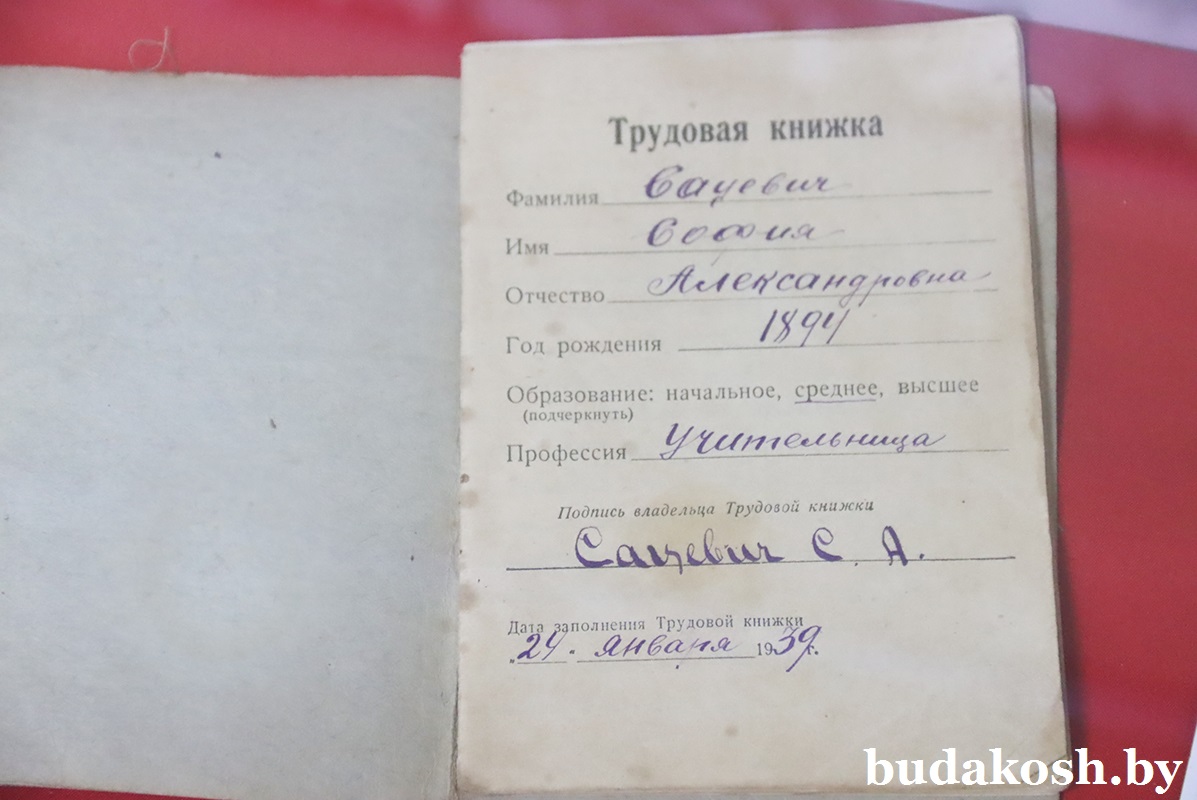 Трудовая книжка
Фамилия Сацевич
Имя София
Отчество Александровна
Год рождения 1894
Образование: начальное, среднее, высшее
(подчеркнуть)
Профессия Учительница
Подпись владельца Трудовой книжки
Сацевич С. А.
Дата заполнения Трудовой книжки
„24" января 1939 г.
budakosh.by